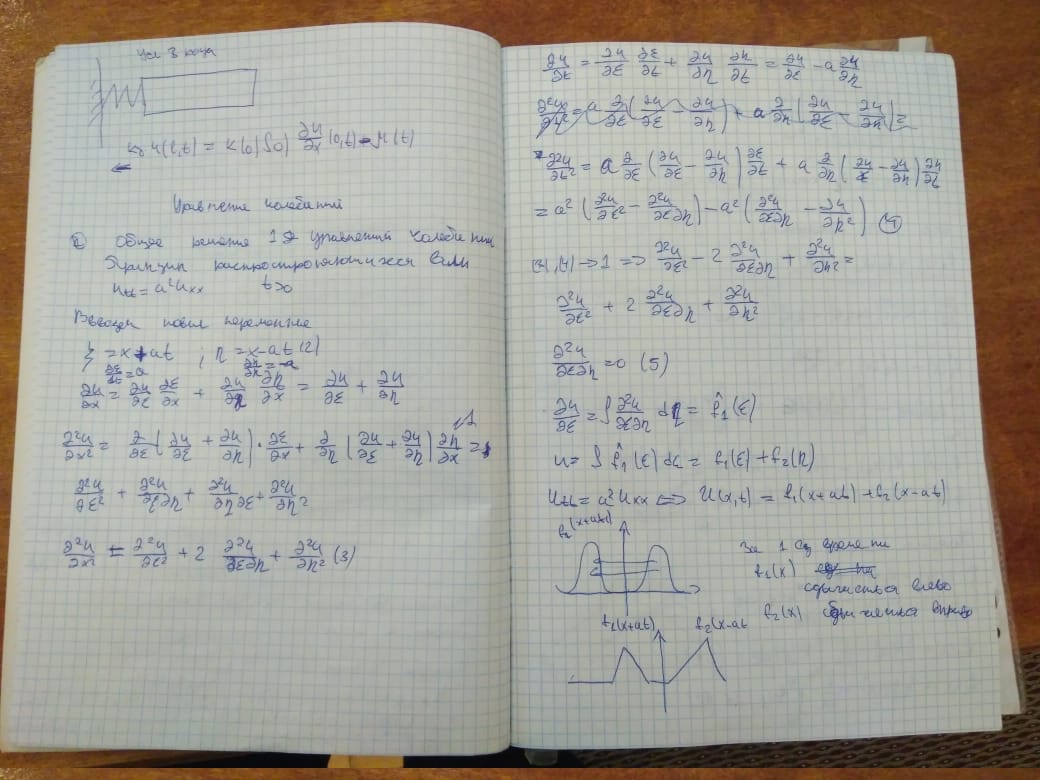 Усл 3 рода
u(l,t) = k(0)S(0) ∂u/∂x (0,t) - μ(t)
Уравнение колебаний
Общее решение 1D уравнений колебаний
Принцип распространяющихся волн
u_tt = a²u_xx t>0
Введем новые переменные
ξ = x+at ; η = x-at (2)
∂ξ/∂t = a ∂η/∂t = -a
∂u/∂x = ∂u/∂ξ ∂ξ/∂x + ∂u/∂η ∂η/∂x = ∂u/∂ξ + ∂u/∂η
∂²u/∂x² = ∂/∂ξ (∂u/∂ξ + ∂u/∂η) · ∂ξ/∂x + ∂/∂η (∂u/∂ξ + ∂u/∂η) ∂η/∂x =
∂²u/∂ξ² + ∂²u/∂ξ∂η + ∂²u/∂η∂ξ + ∂²u/∂η²
∂²u/∂x² = ∂²u/∂ξ² + 2 ∂²u/∂ξ∂η + ∂²u/∂η² (3)
∂u/∂t = ∂u/∂ξ ∂ξ/∂t + ∂u/∂η ∂η/∂t = ∂u/∂ξ - a ∂u/∂η
∂²u/∂t² = a ∂/∂ξ (∂u/∂ξ - ∂u/∂η) ∂ξ/∂t + a ∂/∂η (∂u/∂ξ - ∂u/∂η) ∂η/∂t
= a² (∂²u/∂ξ² - ∂²u/∂ξ∂η) - a² (∂²u/∂ξ∂η - ∂²u/∂η²) (4)
(3),(4) → 1 ⇒ ∂²u/∂ξ² - 2 ∂²u/∂ξ∂η + ∂²u/∂η² =
∂²u/∂ξ² + 2 ∂²u/∂ξ∂η + ∂²u/∂η²
∂²u/∂ξ∂η = 0 (5)
∂u/∂ξ = ∫ ∂²u/∂ξ∂η dη = f̂₁(ξ)
u = ∫ f̂₁(ξ) dξ = f₁(ξ) + f₂(η)
u_tt = a²u_xx ⇔ U(x,t) = f₁(x+at) + f₂(x-at)
За 1 ед времени
f₁(x)
сдвигается влево
f₂(x) сдвигается вправо
f₁(x+at) f₂(x-at